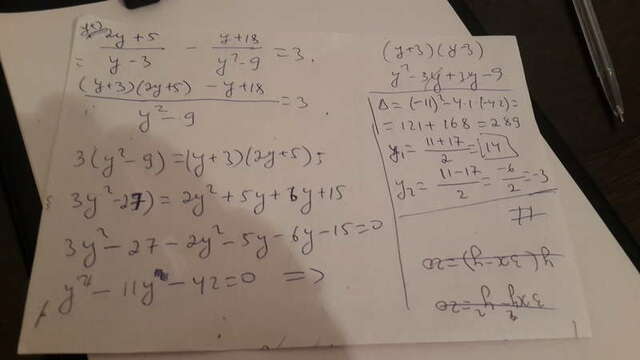 (2y+5)/(y-3) - (y+18)/(y²-9) = 3.
= ((y+3)(2y+5) - y+18)/(y²-9) = 3.
3(y²-9) = (y+3)(2y+5);
3y²-27) = 2y²+5y+6y+15
3y²-27-2y²-5y-6y-15=0
y²-11y-42=0 =>
(y+3)(y-3)
y²-3y+3y-9
Δ=(-11)²-4·1·(-42)=
=121+168=289
y₁=(11+17)/2=14
y₂=(11-17)/2=-6/2=-3
y(3x-y)=20
3xy-y²=20